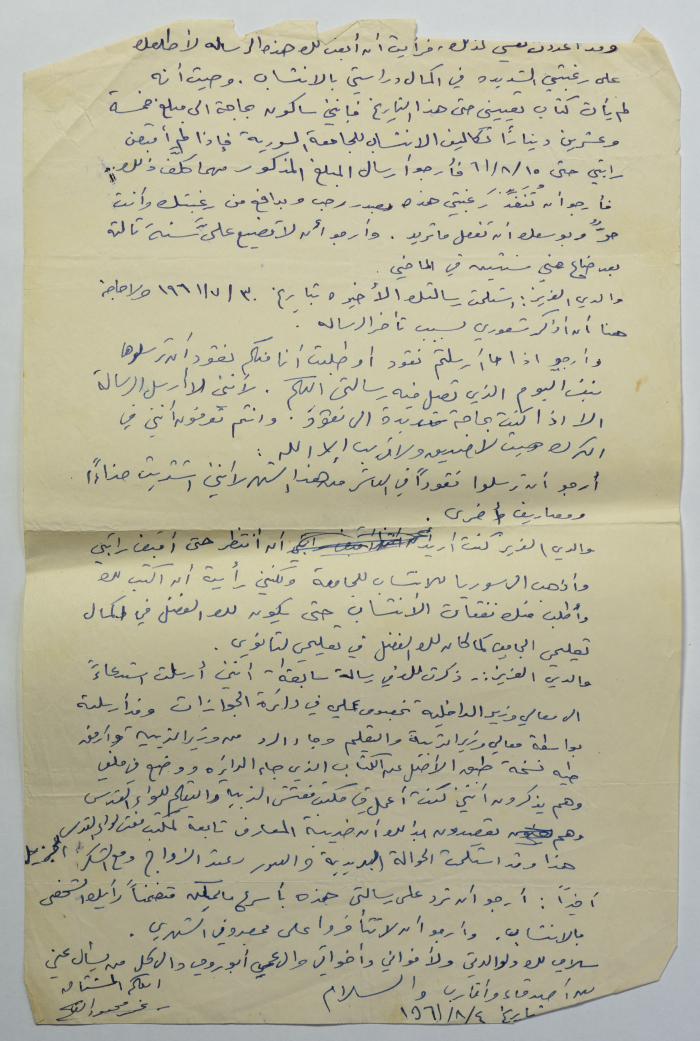 وقد اعددت نفسي لذلك، فرأيت أن أبعث لك هذه الرسالة لأطلعك
على رغبتي الشديدة في اكمال دراستي بالانتساب. وحيث أنه
لم يأت كتاب تعييني حتى هذا التاريخ فإنني سأكون بحاجة الى مبلغ خمسة
وعشرين ديناراً تكاليف الانتساب للجامعة السورية فإذا لم أقبض
راتبي حتى ٦١/٨/١٥ فأرجو ارسال المبلغ المذكور مهما كلف ذلك..
فأرجو أن تُنَفّذَ رغبتي هذه بصدر رحب وبدافع من رغبتك وأنت
حرٌ وبوسعك أن تفعل ما تريد. وأرجو أن لا تضيع علىّ سنة ثالثة
بعد ضياع سنتين في الماضي.
والدي العزيز: استلمت رسالتك الأخيرة بتاريخ ١٩٦١/٧/٣٠ ولا حاجة
هنا أن أذكر شعوري بسبب تأخر الرسالة.
وأرجو اذا ما أرسلتم نقود أو طلبت أنا منكم نقود أن ترسلوها
بنفس اليوم الذي تصل فيه رسالتي اليكم. لأنني لا أرسل الرسالة
الا اذا كنت بحاجة شديدة الى نقود. وانتم تعرفون أنني في
الكرك حيث لا صديق ولا قريب إلا الله.
أرجو أن ترسلوا نقوداً في العاشر من هذا الشهر لأنني اشتريت حذاءاً
ومصاريف أخرى.
والدي العزيز كنت أريد أن أنتظر حتى أقبض راتبي
وأذهب الى سوريا للانتساب للجامعة ولكنني رأيت أن اكتب لك
وأطلب منك نفقات الانتساب حتى يكون لك الفضل في اكمال
تعليمي الجامعي كما كان لك الفضل في تعليمي الثانوي.
والدي العزيز:- ذكرت لك في رسالة سابقة أنني أرسلت استدعاءً
الى معالي وزير الداخلية بخصوص عملي في دائرة الجوازات وقد أرسلته
بواسطة معالي وزير التربية والتعليم وجاء الرد من وزير التربية وأرفق
طيه نسخة طبق الأصل عن الكتاب الذي جاء الدائرة ووضع في ملفي
وهم يذكرون أنني كنت أعمل في مكتب مفتش التربية والتعليم للواء القدس
وهم يقصدون بذلك أن ضريبة المعارف تابعة لمكتب مفتش لواء القدس
هذا وقد استلمت الحوالة البريدية والصور وعقد الزواج ومع الشكر الجزيل
أخيراً: أرجو أن ترد على رسالتي هذه بأسرع ما يمكن متضمناً رأيك الشخصي
بالانتساب. وأرجو أن لا تتأخروا على مصروفي الشهري.
سلامي لك ولوالدتي ولأخواني وأخواتي والى عمي أبو روحي والى كل من يسأل عني
من أصدقاء وأقارب والسلام
ابنكم المشتاق
بتاريخ ١٩٦١/٨/٤